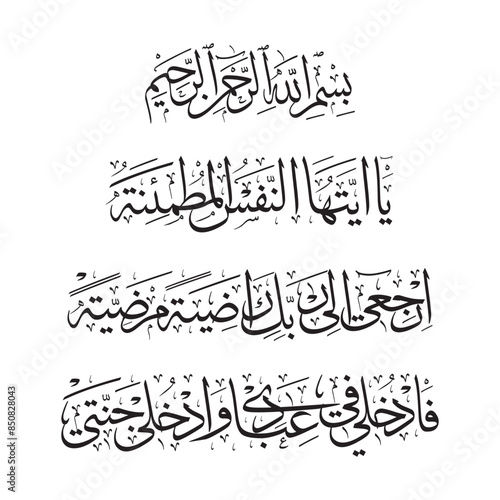 بِسْمِ اللهِ الرَّحْمٰنِ الرَّحِيْمِ
يَا اَيَّتُهَا النَّفْسُ الْمُطْمَئِنَّةُ
اِرْجِعِيْ اِلٰى رَبِّكِ رَاضِيَةً مَرْضِيَّةً
فَادْخُلِيْ فِيْ عِبَادِيْ وَادْخُلِيْ جَنَّتِيْ
Adobe Stock | #850828043
Adobe Stock